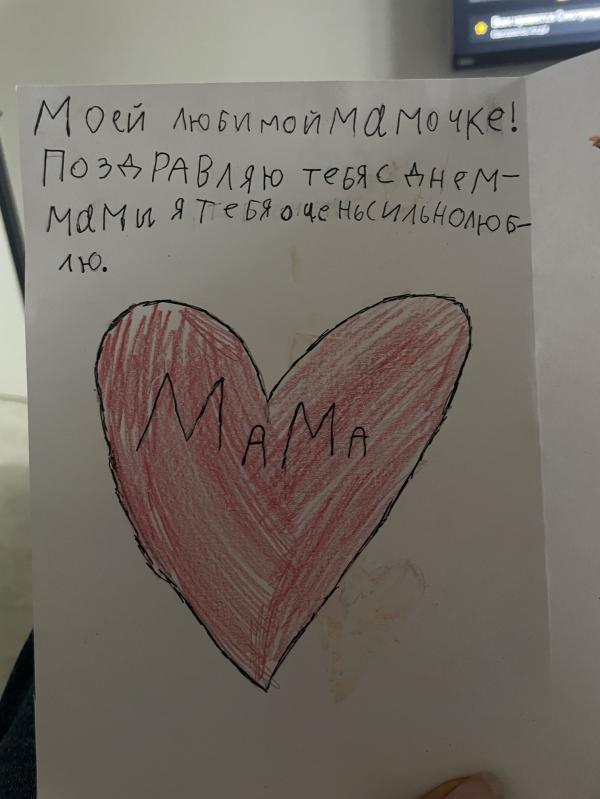 Моей любимой мамочке!
Поздравляю тебя с днем-
мамы я тебя оценьсильнолюб-
лю.
Мама